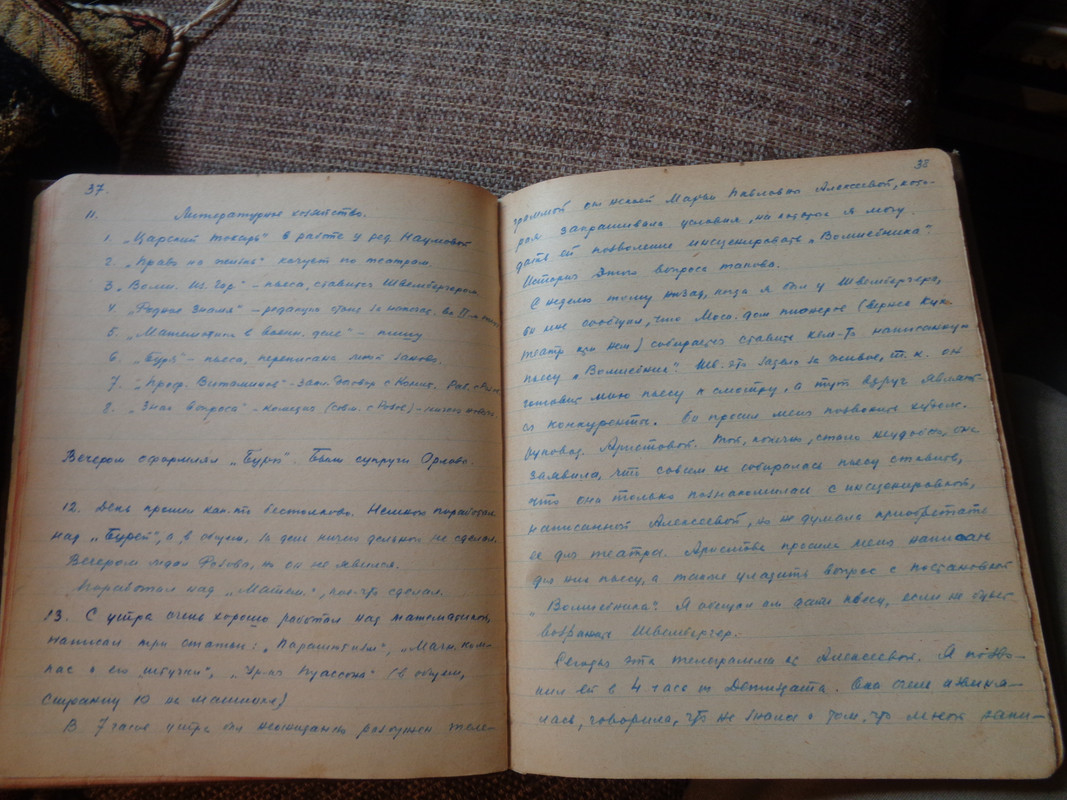 37.
11. Литературное хозяйство.
1. „Царский токарь" в работе у ред. Наумовой
2. „Право на жизнь" кочует по театрам.
3. „Волш. Из. Гор." – пьеса, ставится Швембергером
4. „Родные знамена" – редакцию стоит
5. „Математика в военн. деле" – пишу
6. „Буря" – пьеса, переписана
7. „Проф. Витаминов" – закл. договор с
8. „Знак вопроса" – комедия (совм. с Розов) – ничего нового.
Вечером оформлял „Бурю". Были супруги Орловы.
12. День прошел как-то бестолково. Немного поработал
над „Бурей", а, в общем, за день ничего дельного не сделал.
Вечером ждал Розова, но он не явился.
Поработал над „Матем.", кое-что сделал.
13. С утра очень хорошо работал над математикой,
написал три статьи: „Парашютизм", „Магн. ком-
пас и его штучки", „Ур-ие Пуассона" (в общем,
страниц 10 на машинке)
В 7 часов утра был неожиданно разбужен теле-
38
граммой от некоей Марьи Павловны Алексеевой, кото-
рая запрашивала условия, на которые я могу
дать ей позволение инсценировать „Волшебника".
История этого вопроса такова.
С неделю тому назад, когда я был у Швембергера,
он мне сообщил, что Моск. дом пионеров (вернее кук.
театр при нем) собирается ставить кем-то написанную
пьесу „Волшебник". Шв. это задело за живое, т. к. он
готовит мою пьесу к смотру, а тут вдруг являют-
ся конкуренты. Он просил меня позвонить худож.
руковод. Аристовой. Той, конечно, стало неудобно, она
заявила, что совсем не собиралась пьесу ставить,
что она только познакомилась с инсценировкой,
написанной Алексеевой, но не думала приобретать
ее для театра. Аристова просила меня написать
для них пьесу, а также уладить вопрос с постановкой
„Волшебника". Я обещал им дать пьесу, если не будет
возражать Швембергер.
Сегодня эта телеграмма от Алексеевой. Я позво-
нил ей в 4 часа из Детиздата. Она очень извиня-
лась, говорила, что не знала о том, что мною запи-